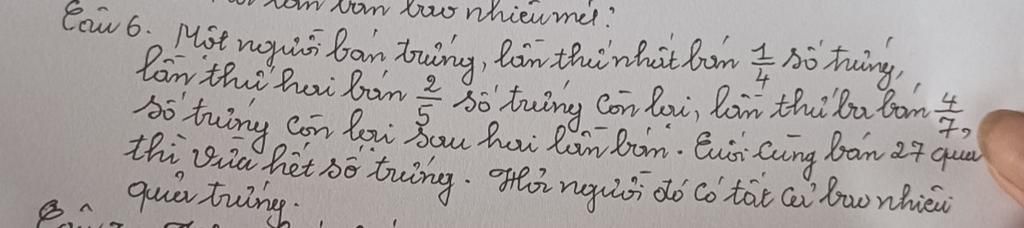 bao nhiêu mét?
Câu 6. Một người bán trứng, lần thứ nhất bán 1/4 số trứng,
lần thứ hai bán 2/5 số trứng còn lại, lần thứ ba bán 4/7,
số trứng còn lại sau hai lần bán. Cuối cùng bán 27 quả
thì vừa hết số trứng. Hỏi người đó có tất cả bao nhiêu
quả trứng.